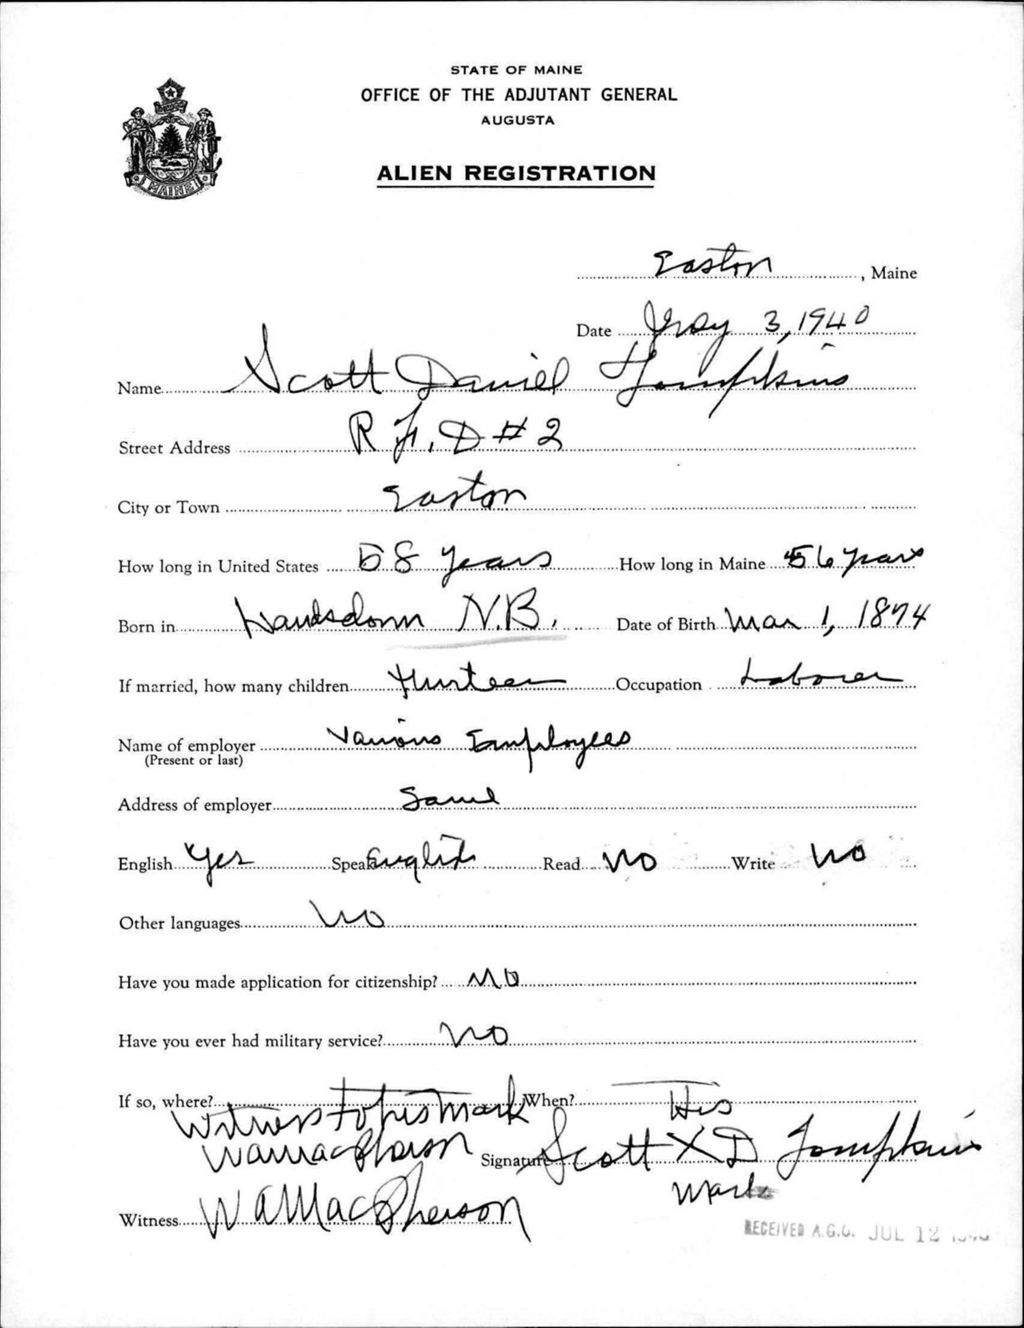 STATE OF MAINE
OFFICE OF THE ADJUTANT GENERAL
AUGUSTA
ALIEN REGISTRATION
MAINE
Easton, Maine
Date 3, 1940
Name Scott Daniel Tompkins
Street Address R.F.D #2
City or Town Easton
How long in United States 58 years How long in Maine 56 years
Born in N.B. Date of Birth Mar 1, 1874
If married, how many children Occupation Laborer
Name of employer Various Employees
(Present or last)
Address of employer Same
English Yes Speak English Read No Write No
Other languages No
Have you made application for citizenship? No
Have you ever had military service? No
If so, where? When?
Witness to his mark His
W A MacPherson Signature Scott X D Tompkins
Mark
Witness W A MacPherson
RECEIVED A.G.O. JUL 12